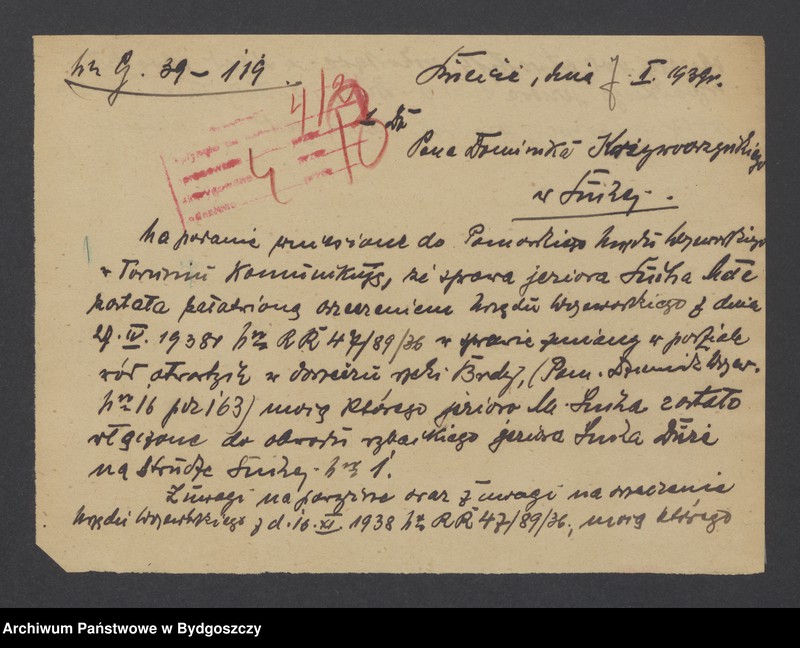 Nr G. 39-119
Świecie, dnia 7. I. 1939r.
1. Do
Pana Dominika
w Suchej.
Na podanie wniesione do Pomorskiego Urzędu Wojewódzkiego
w Toruniu komunikuję, że sprawa jeziora Sucha Małe
została załatwioną orzeczeniem Urzędu Wojewódzkiego z dnia
IV. 1938r Nr RR 47/89/36 w sprawie zmiany w podziale
wód otwartych w dorzeczu rzeki Brdy, (Pom. Dziennik Wojew.
Nr 16 poz 163) mocą którego jezioro M. Sucha zostało
włączone do obwodu rybackiego jeziora Sucha Duże
na Strudze Suchej Nr 1.
Z uwagi na powyższe oraz z uwagi na orzeczenie
Urzędu Wojewódzkiego z d. 16. XI 1938 Nr RR 47/89/36, mocą którego
Archiwum Państwowe w Bydgoszczy